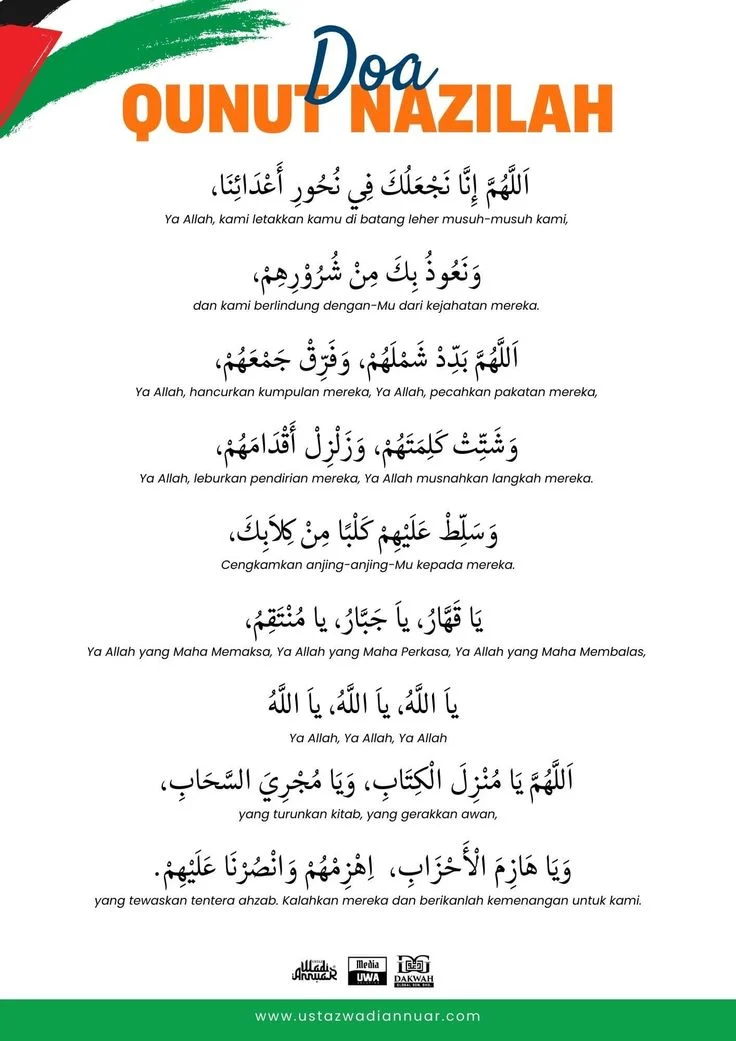 Doa
QUNUT NAZILAH
اَللَّهُمَّ إِنَّا نَجْعَلُكَ فِي نُحُورِ أَعْدَائِنَا،
Ya Allah, kami letakkan kamu di batang leher musuh-musuh kami,
وَنَعُوذُ بِكَ مِنْ شُرُوْرِهِمْ،
dan kami berlindung dengan-Mu dari kejahatan mereka.
اَللَّهُمَّ بَدِّدْ شَمْلَهُمْ، وَفَرِّقْ جَمْعَهُمْ،
Ya Allah, hancurkan kumpulan mereka, Ya Allah, pecahkan pakatan mereka,
وَشَتِّتْ كَلِمَتَهُمْ، وَزَلْزِلْ أَقْدَامَهُمْ،
Ya Allah, leburkan pendirian mereka, Ya Allah musnahkan langkah mereka.
وَسَلِّطْ عَلَيْهِمْ كَلْبًا مِنْ كِلاَبِكَ،
Cengkamkan anjing-anjing-Mu kepada mereka.
يَا قَهَّارُ، ياَ جَبَّارُ، يا مُنْتَقِمُ،
Ya Allah yang Maha Memaksa, Ya Allah yang Maha Perkasa, Ya Allah yang Maha Membalas,
ياَ اللَّهُ، ياَ اللَّهُ، ياَ اللَّهُ
Ya Allah, Ya Allah, Ya Allah
اَللَّهُمَّ يَا مُنْزِلَ الْكِتَابِ، وَيَا مُجْرِيَ السَّحَابِ،
yang turunkan kitab, yang gerakkan awan,
وَيَا هَازِمَ الْأَحْزَابِ، اِهْزِمْهُمْ وَانْصُرْنَا عَلَيْهِمْ.
yang tewaskan tentera ahzab. Kalahkan mereka dan berikanlah kemenangan untuk kami.
Wadi Annuar
Media UWA
DAKWAH
www.ustazwadiannuar.com